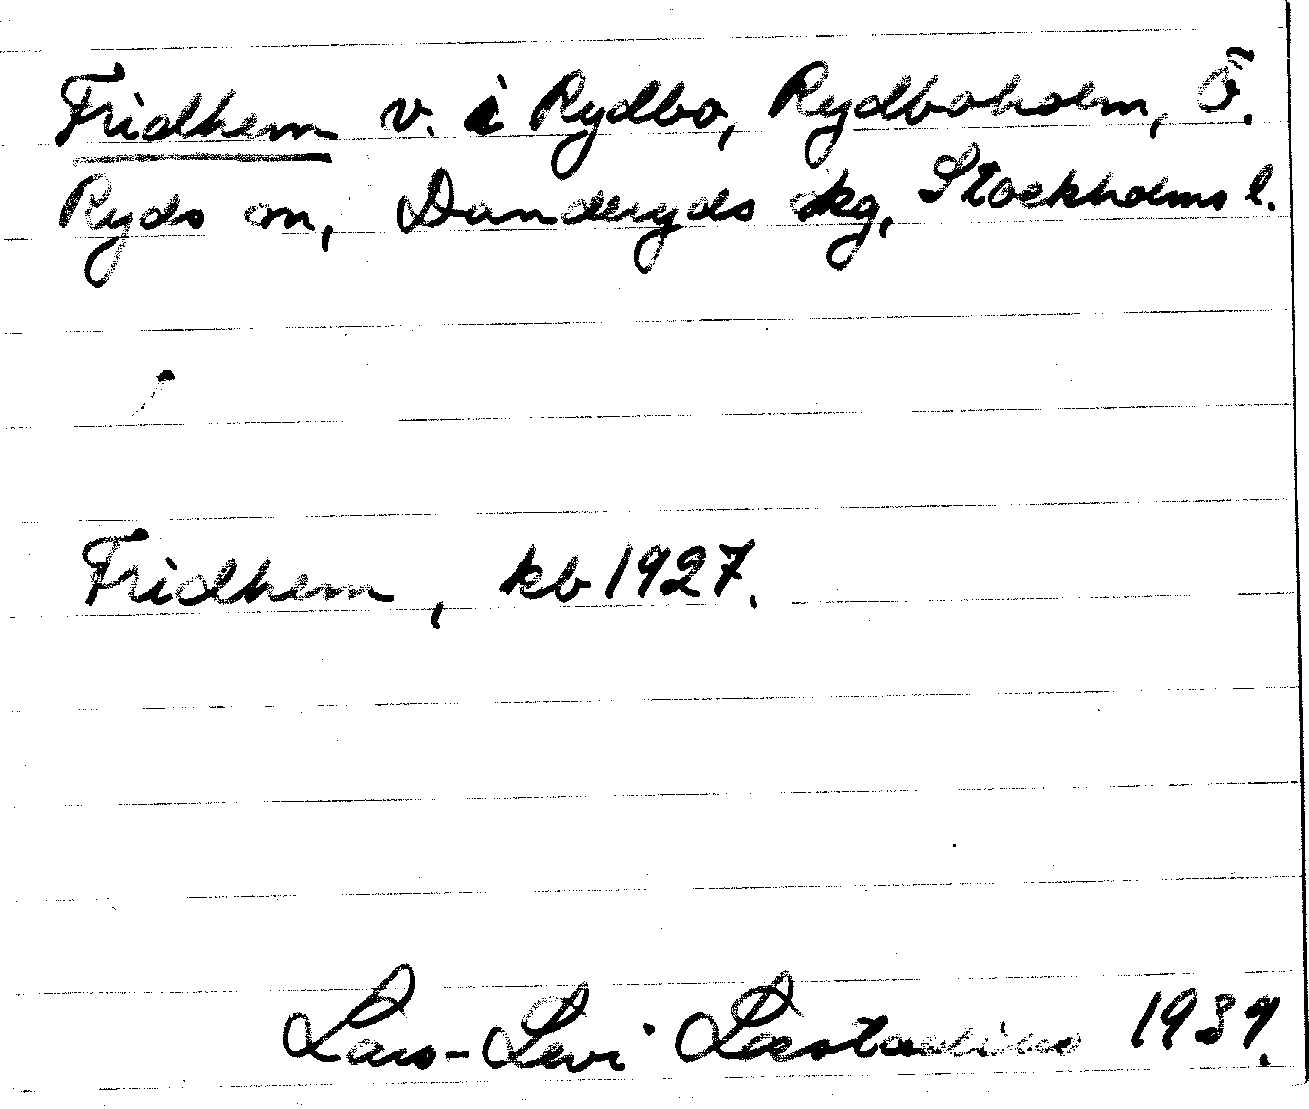 Fridhem v. i Rydbo, Rydboholm, Ö.
Ryds sn, Danderyds skg, Stockholms l.
Fridhem, kb 1927.
Lars-Levi Læstadius 1937.